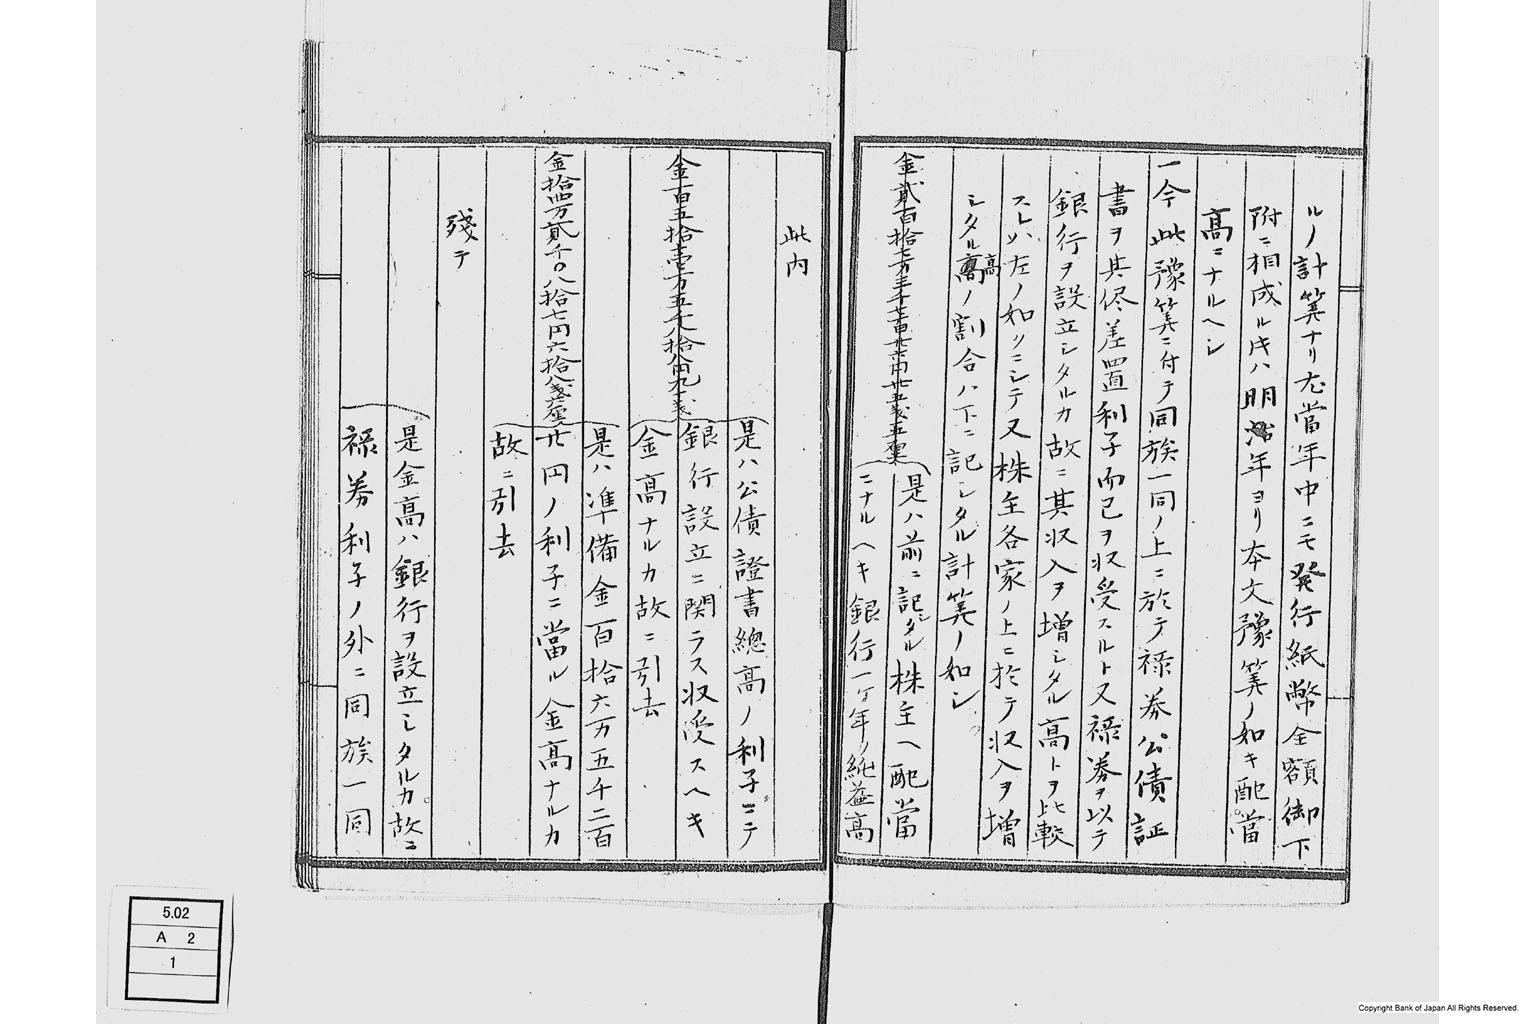 ルノ計算ナリ尤當年中ニモ発行紙幣全額御下
附ニ相成ル片ハ明治年ヨリ本文豫算ノ如キ配當
高ニナルヘシ
一今此豫算ニ付テ同族一同ノ上ニ於テ禄券公債証
書ヲ其侭差置利子而已ヲ収受スルト又禄券ヲ以テ
銀行ヲ設立シタルカ故ニ其収入ヲ増シタル高トヲ比較
スレハ左ノ如クニシテ又株主各家ノ上ニ於テ収入ヲ増
シタル高ノ割合ハ下ニ記シタル計算ノ如シ
是ハ前ニ記シタル株主ヘ配當
ニナルヘキ銀行一ケ年ノ純益高
此内
金百五拾壱万五千八拾八円九十銭
是ハ公債證書總高ノ利子ニテ
銀行設立ニ関ラス収受スヘキ
金高ナルカ故ニ引去
金拾四万貳千〇八拾七円六拾八銭六厘
是ハ準備金百拾六万五千二百
廿円ノ利子ニ當ル金高ナルカ
故ニ引去
殘テ
是金高ハ銀行ヲ設立シタルカ故ニ
禄券利子ノ外ニ同族一同
5.02
A 2
1
Copyright Bank of Japan All Rights Reserved.